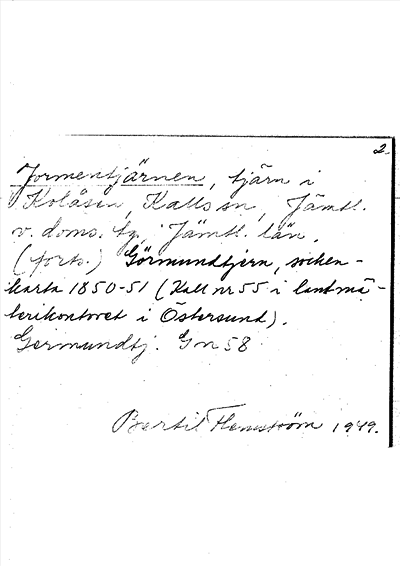 2.
Jormentjärnen, tjärn i
Kolåsen, Kalls sn, Jämtl.
v. doms. tg, Jämtl. län.
(forts.) Görmundtjern, socken-
karta 1850-51 (Kall nr 55 i lantmä-
terikontoret i Östersund).
Germundtj. Gn 58
Bertil Flemström 1949.